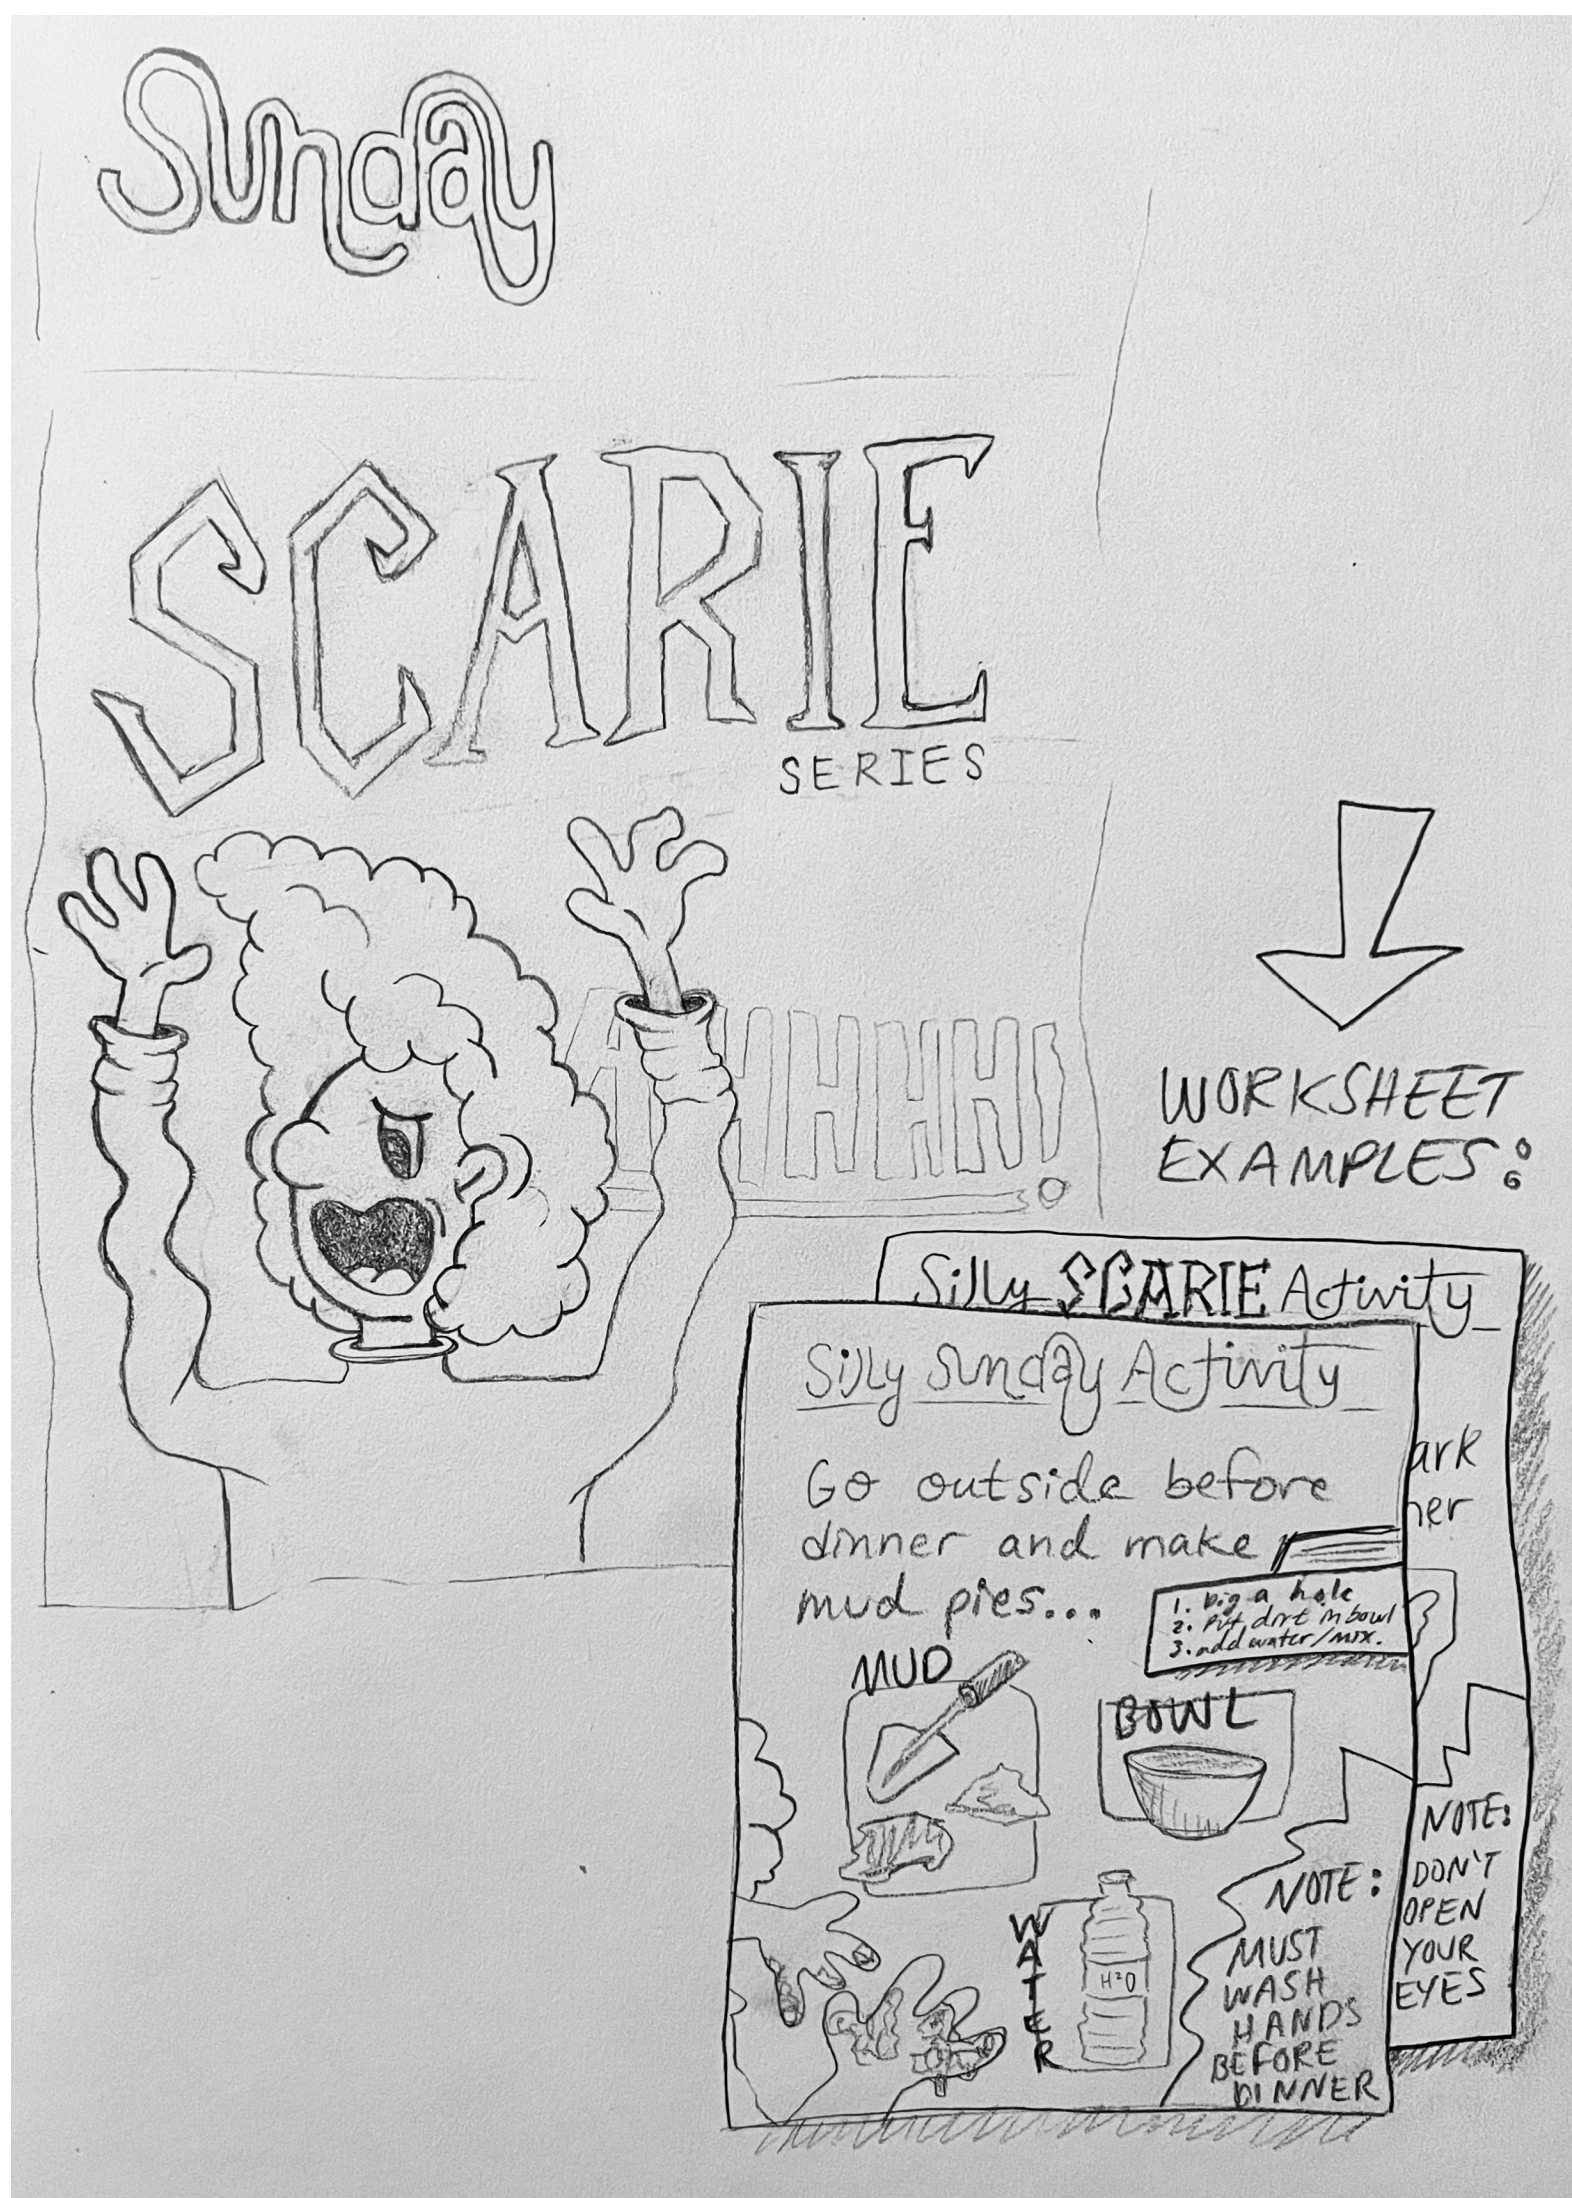 Sunday
SCARIE
SERIES
AHHHH!
WORKSHEET
EXAMPLES:
Silly SCARIE Activity
ark
her
NOTE:
DON'T
OPEN
YOUR
EYES
Silly Sunday Activity
Go outside before
dinner and make
mud pies...
1. Dig a hole
2. Put dirt in bowl
3. add water/mix.
MUD
BOWL
WATER
H²O
NOTE:
MUST
WASH
HANDS
BEFORE
DINNER